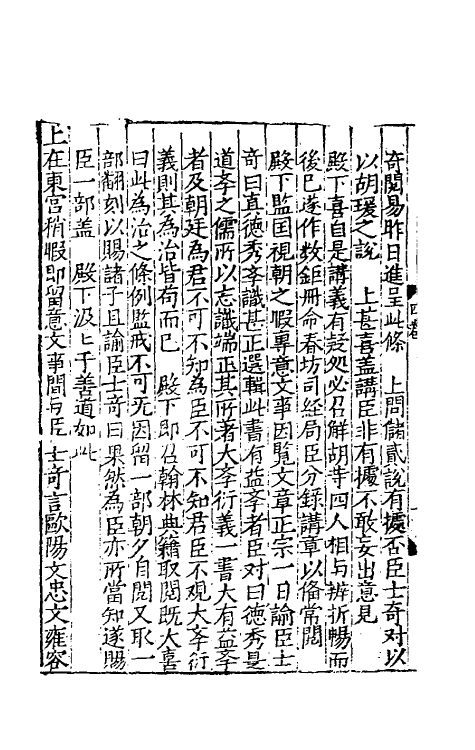 奇閱易昨日進呈此條　上問儲貳說有據否臣士奇对以
以胡瑗之說　上甚喜盖講臣非有據不敢妄出意見
殿下喜自是講義有疑処必召解胡寺四人相与辨折暢而
後已遂作数鉅冊命春坊司経局臣分録講章以俻常閱
殿下監囯視朝之暇專意文事因覧文章正宗一日諭臣士
奇曰真德秀斈識甚正選輯此書有益斈者臣对曰德秀是
道斈之儒所以志識端正其所著大斈衍義一書大有益斈
者及朝廷為君不可不知為臣不可不知君臣不观大斈衍
義則其為治皆苟而已　殿下即召翰林典籍取閱既大喜
曰此為治之條例監戒不可无因留一部朝夕自閱又取一
部翻刻以賜諸子且諭臣士奇曰果然為臣亦所當知遂賜
臣一部盖　殿下汲〻于善道如此
上在東宫稍暇即留意文事間与臣士奇言歐陽文忠文雍容